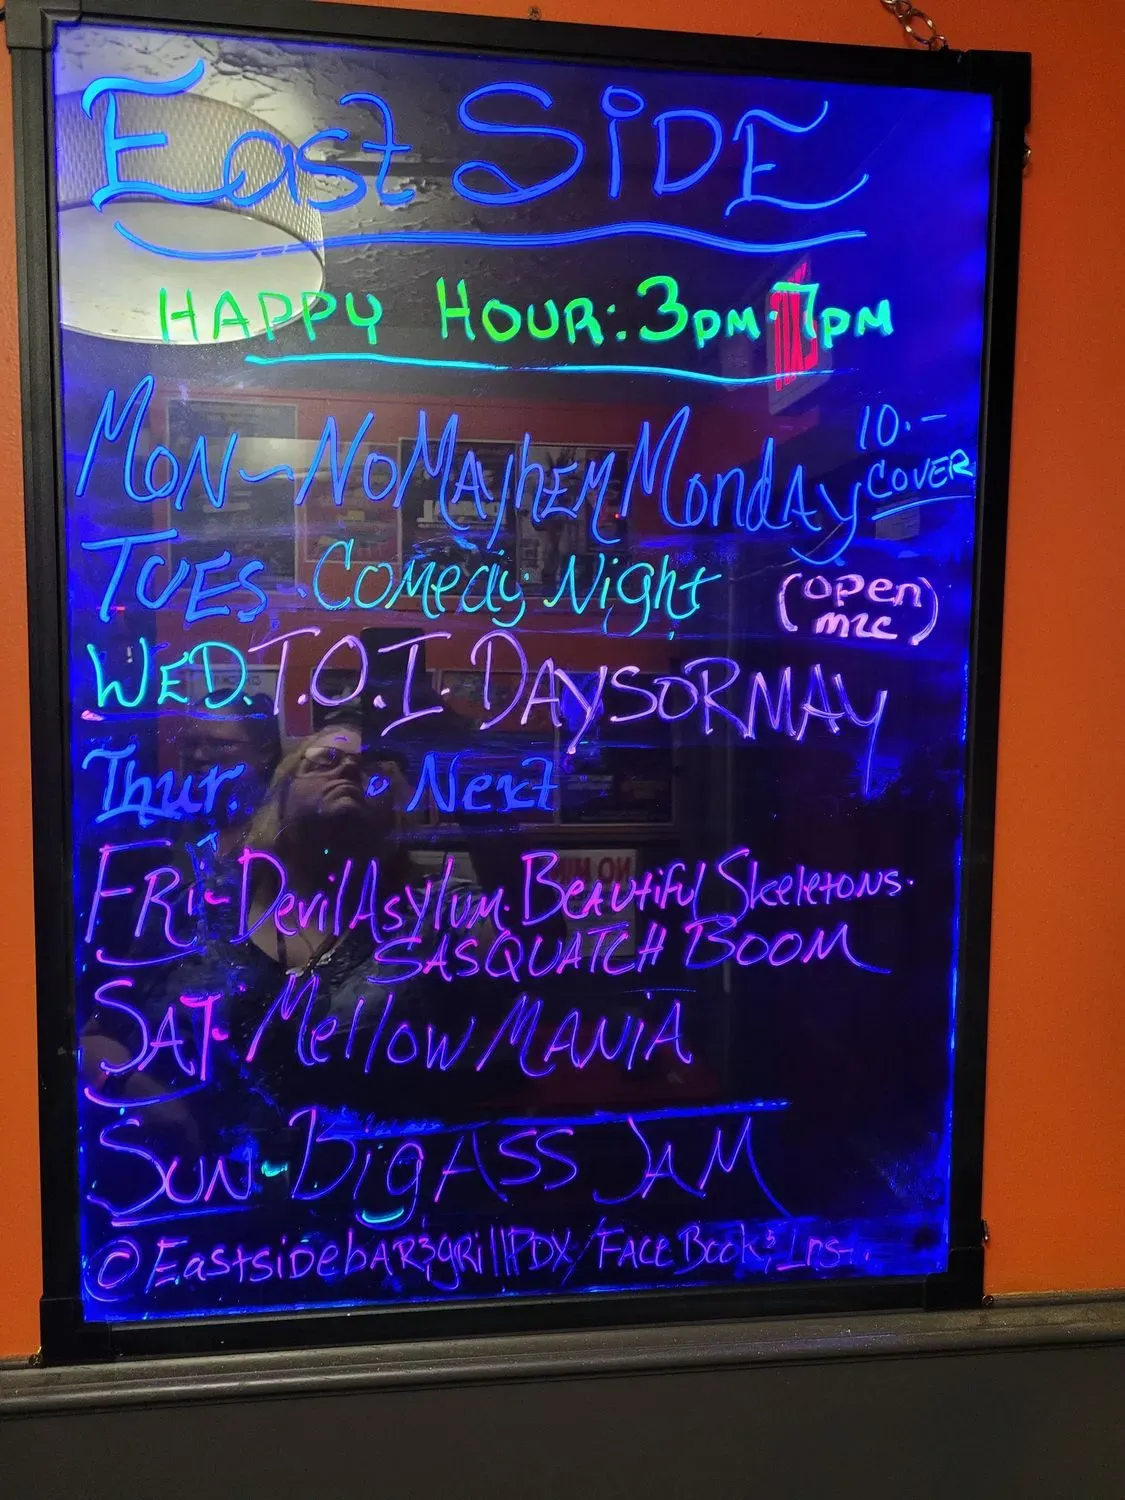 East SiDE
HAPPY HOUR: 3PM-7PM
MON~NO MAyhEM MondAy 10.- COVER
TUES. Comedy Night (open mic)
WED. T.O.I. DAYSORMAY
Thur. Next
FRi- Devil Asylum. BeAutiful Skeletons.
SASQUATCH BOOM
SAT- Mellow MANiA
SUN- Big ASS JAM
@EastsidebAR&gRillPDX/FAceBook& Inst.